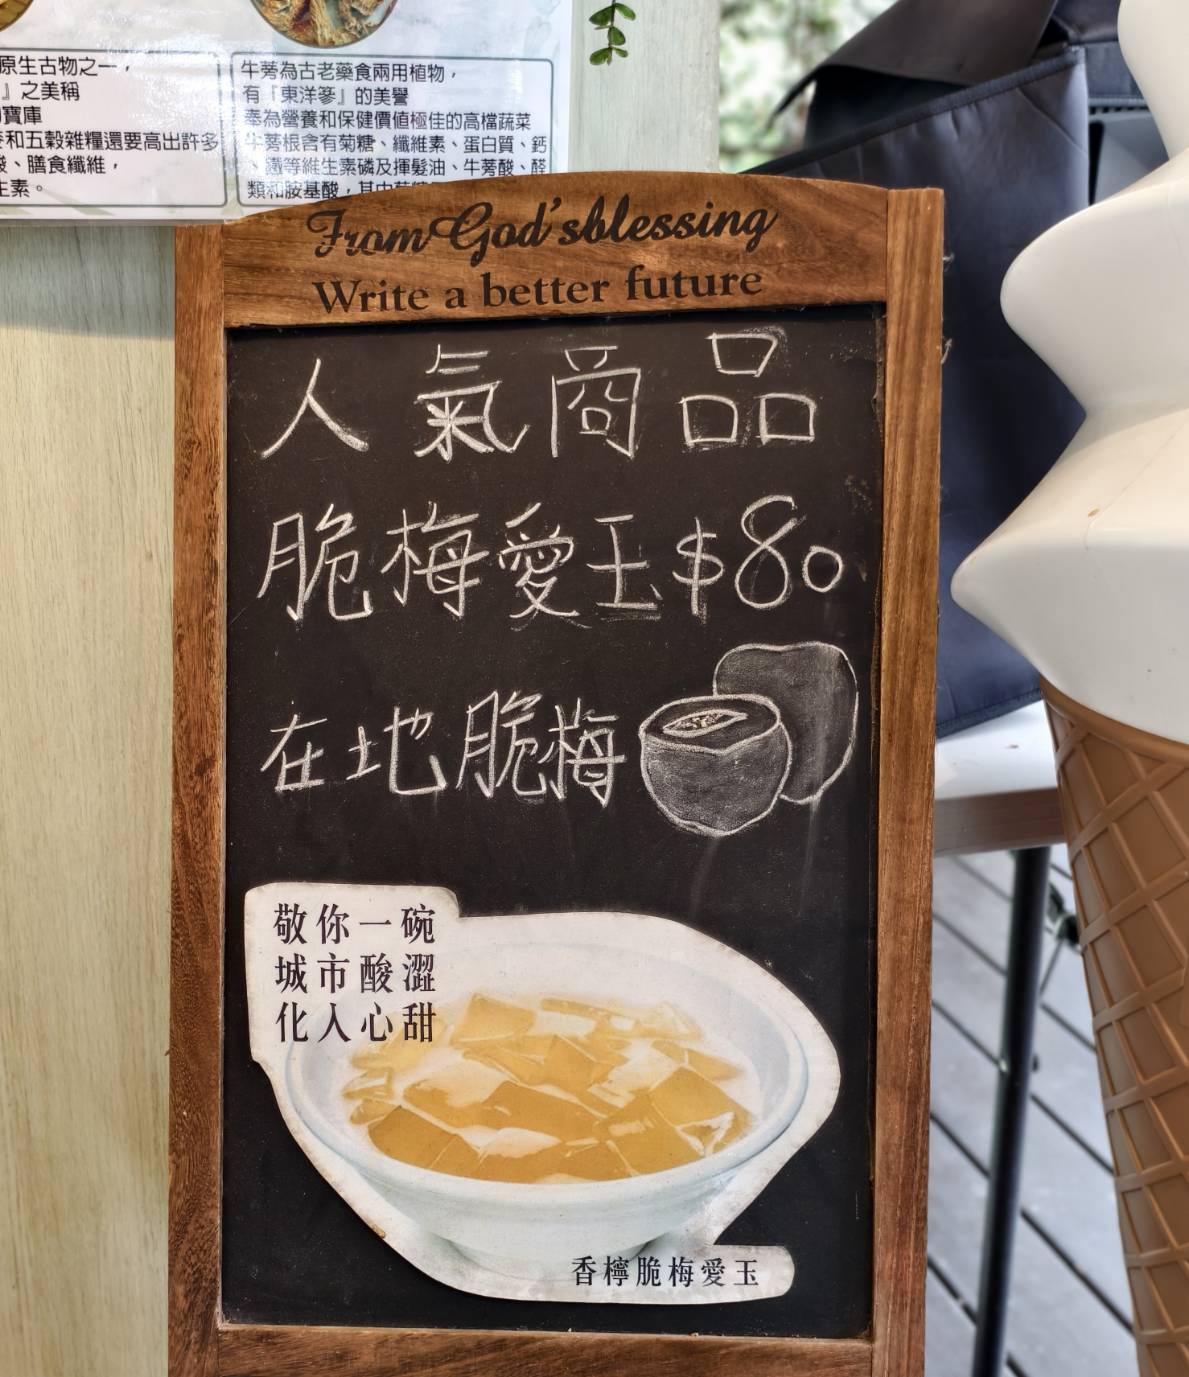 原生古物之一，
』之美稱
寶庫
和五穀雜糧還要高出許多
、膳食纖維，
生素。
牛蒡為古老藥食兩用植物，
有『東洋參』的美譽
奉為營養和保健價值極佳的高檔蔬菜
牛蒡根含有菊糖、纖維素、蛋白質、鈣
、鐵等維生素磷及揮髮油、牛蒡酸、醛
類和胺基酸，其中
From God'sblessing
Write a better future
人氣商品
脆梅愛玉$80
在地脆梅
敬你一碗
城市酸澀
化人心甜
香檸脆梅愛玉